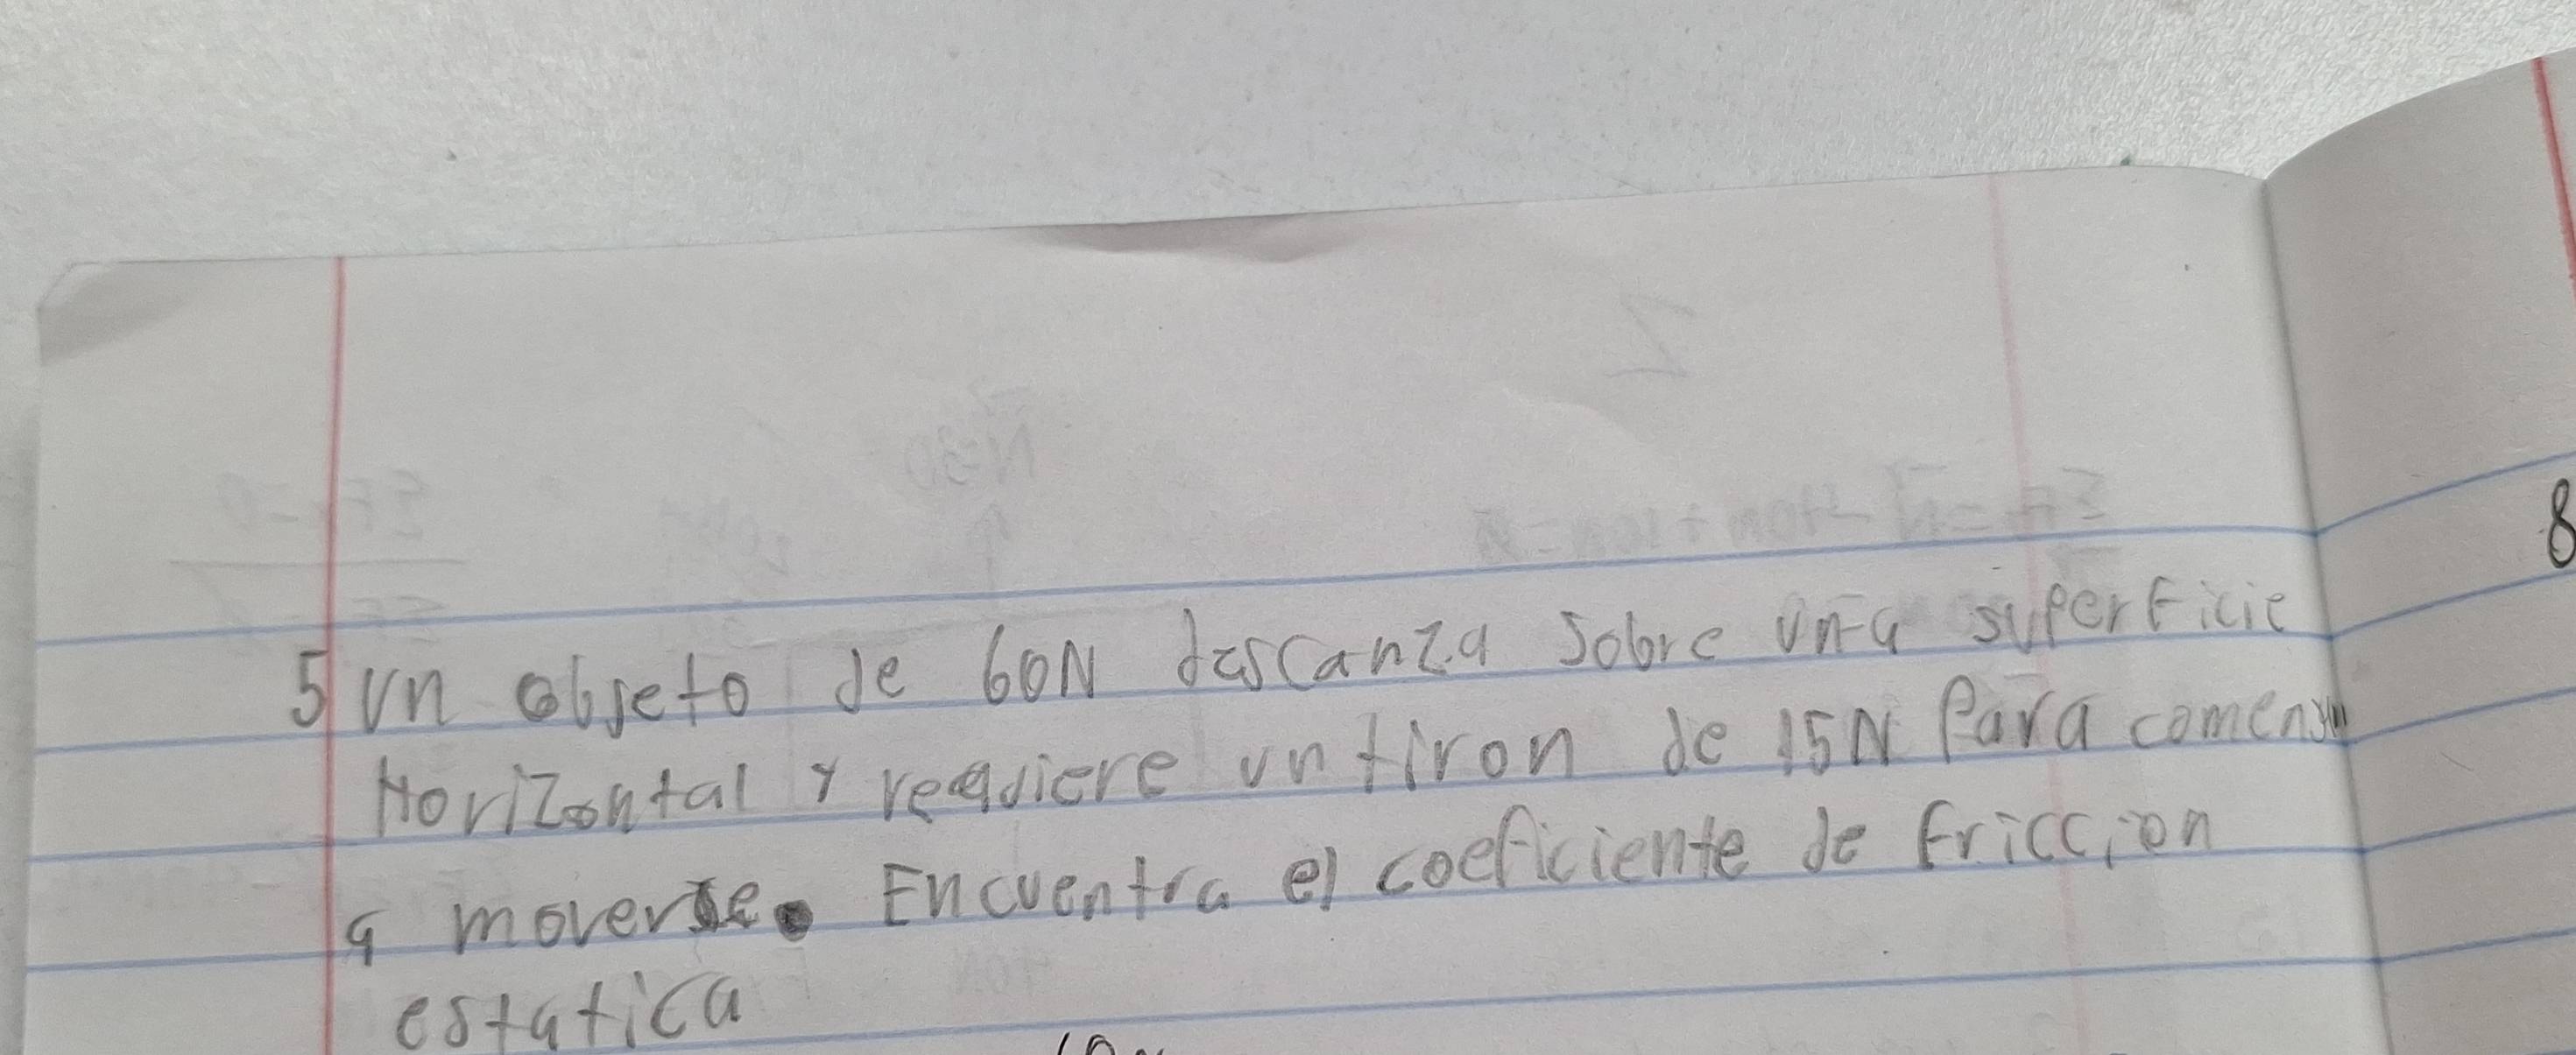 5 Un objeto de 60N descanza sobre una superficie
Horizontal y requiere un tiron de 15N Para
a moverse. Encuentra el coeficiente de friccion
estatica
8